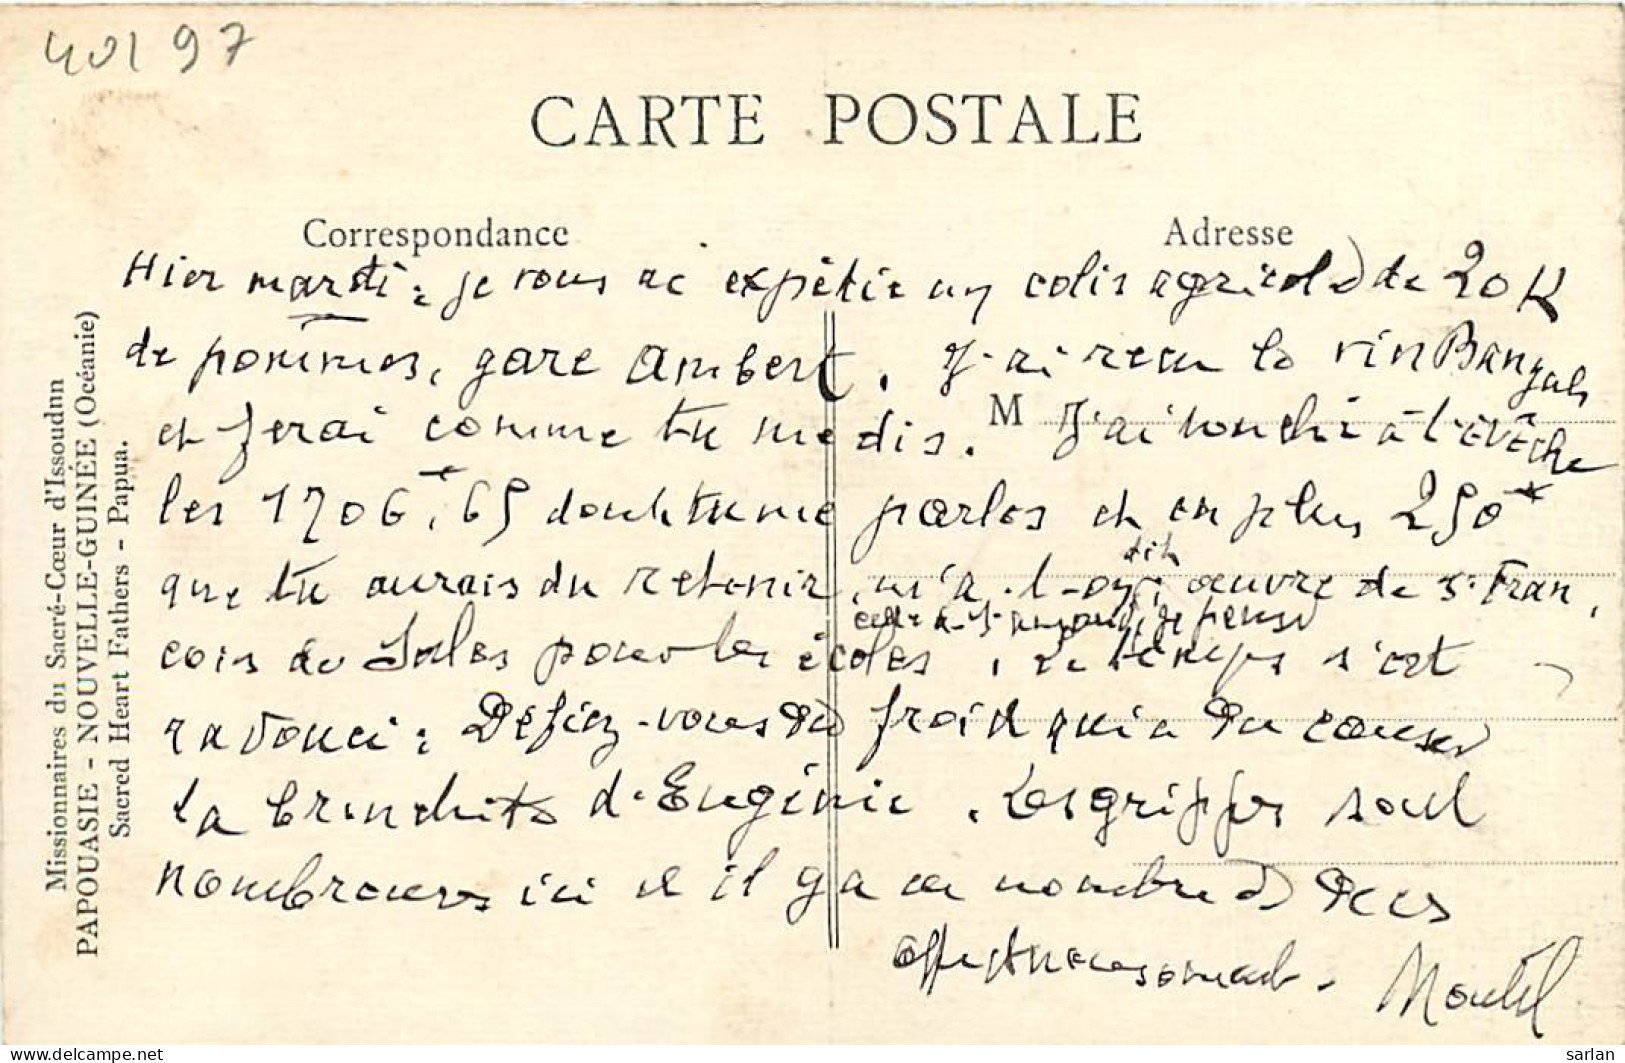 40197
CARTE POSTALE
Correspondance
Adresse
Hier mardi : je vous ai expédié un colis agricole de 20 K
de pommes, gare Ambert. J'ai reçu le vin Banyuls
M
et ferai comme tu me dis. J'ai touché à l'évêché
les 1706f,65 dont tu me parles et en plus 250f
que tu aurais du retenir, m'a-t-on dit œuvre de St Fran,
cois de Sales pour les écoles, le temps s'est
radouci : Défiez-vous du froid qui a du causer
la bronchite d'Eugénie. Les grippes sont
nombreuses ici et il y a eu nombre de décès
affectueusement.
Missionnaires du Sacré-Cœur d'Issoudnn
PAPOUASIE - NOUVELLE-GUINÉE (Océanie)
Sacred Heart Fathers - Papua.
www.delcampe.net
sarlan